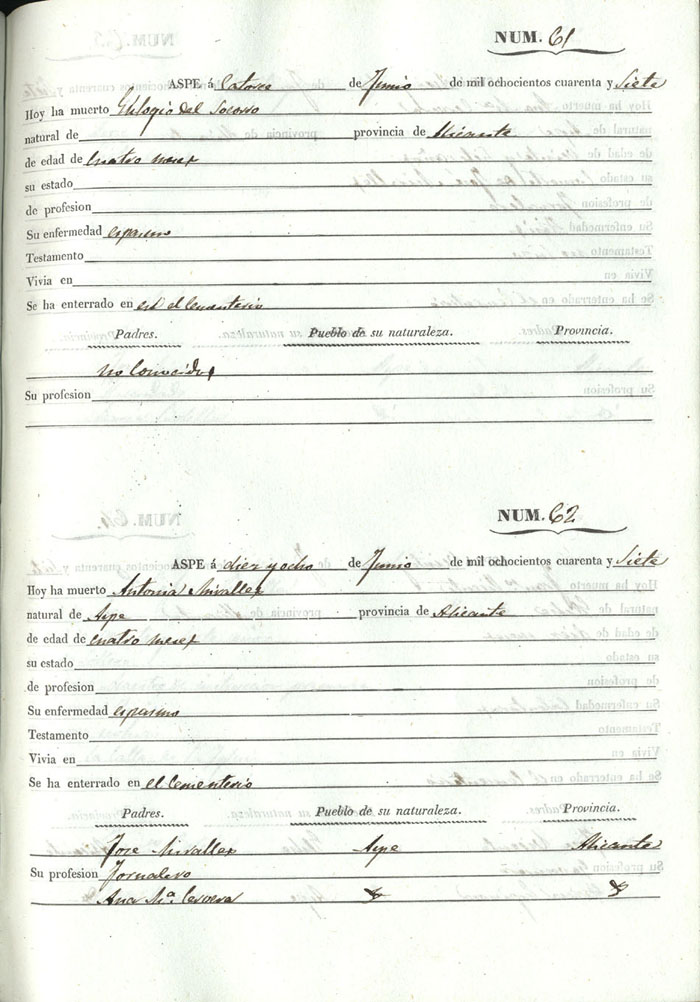 NUM. 61
ASPE á Catorce de Junio de mil ochocientos cuarenta y Siete
Hoy ha muerto Eulogio del Socorro
natural de provincia de Alicante
de edad de cuatro meses
su estado
de profesion
Su enfermedad espasmo
Testamento
Vivia en
Se ha enterrado en el Cementerio
Padres. Pueblo de su naturaleza. Provincia.
no Conocidos
Su profesion
NUM. 62
ASPE á diez y ocho de Junio de mil ochocientos cuarenta y Siete
Hoy ha muerto Antonia Miralles
natural de Aspe provincia de Alicante
de edad de cuatro meses
su estado
de profesion
Su enfermedad espasmo
Testamento
Vivia en
Se ha enterrado en el Cementerio
Padres. Pueblo de su naturaleza. Provincia.
Jose Miralles Aspe Alicante
Su profesion Jornalero
Ana Mª. Cervera